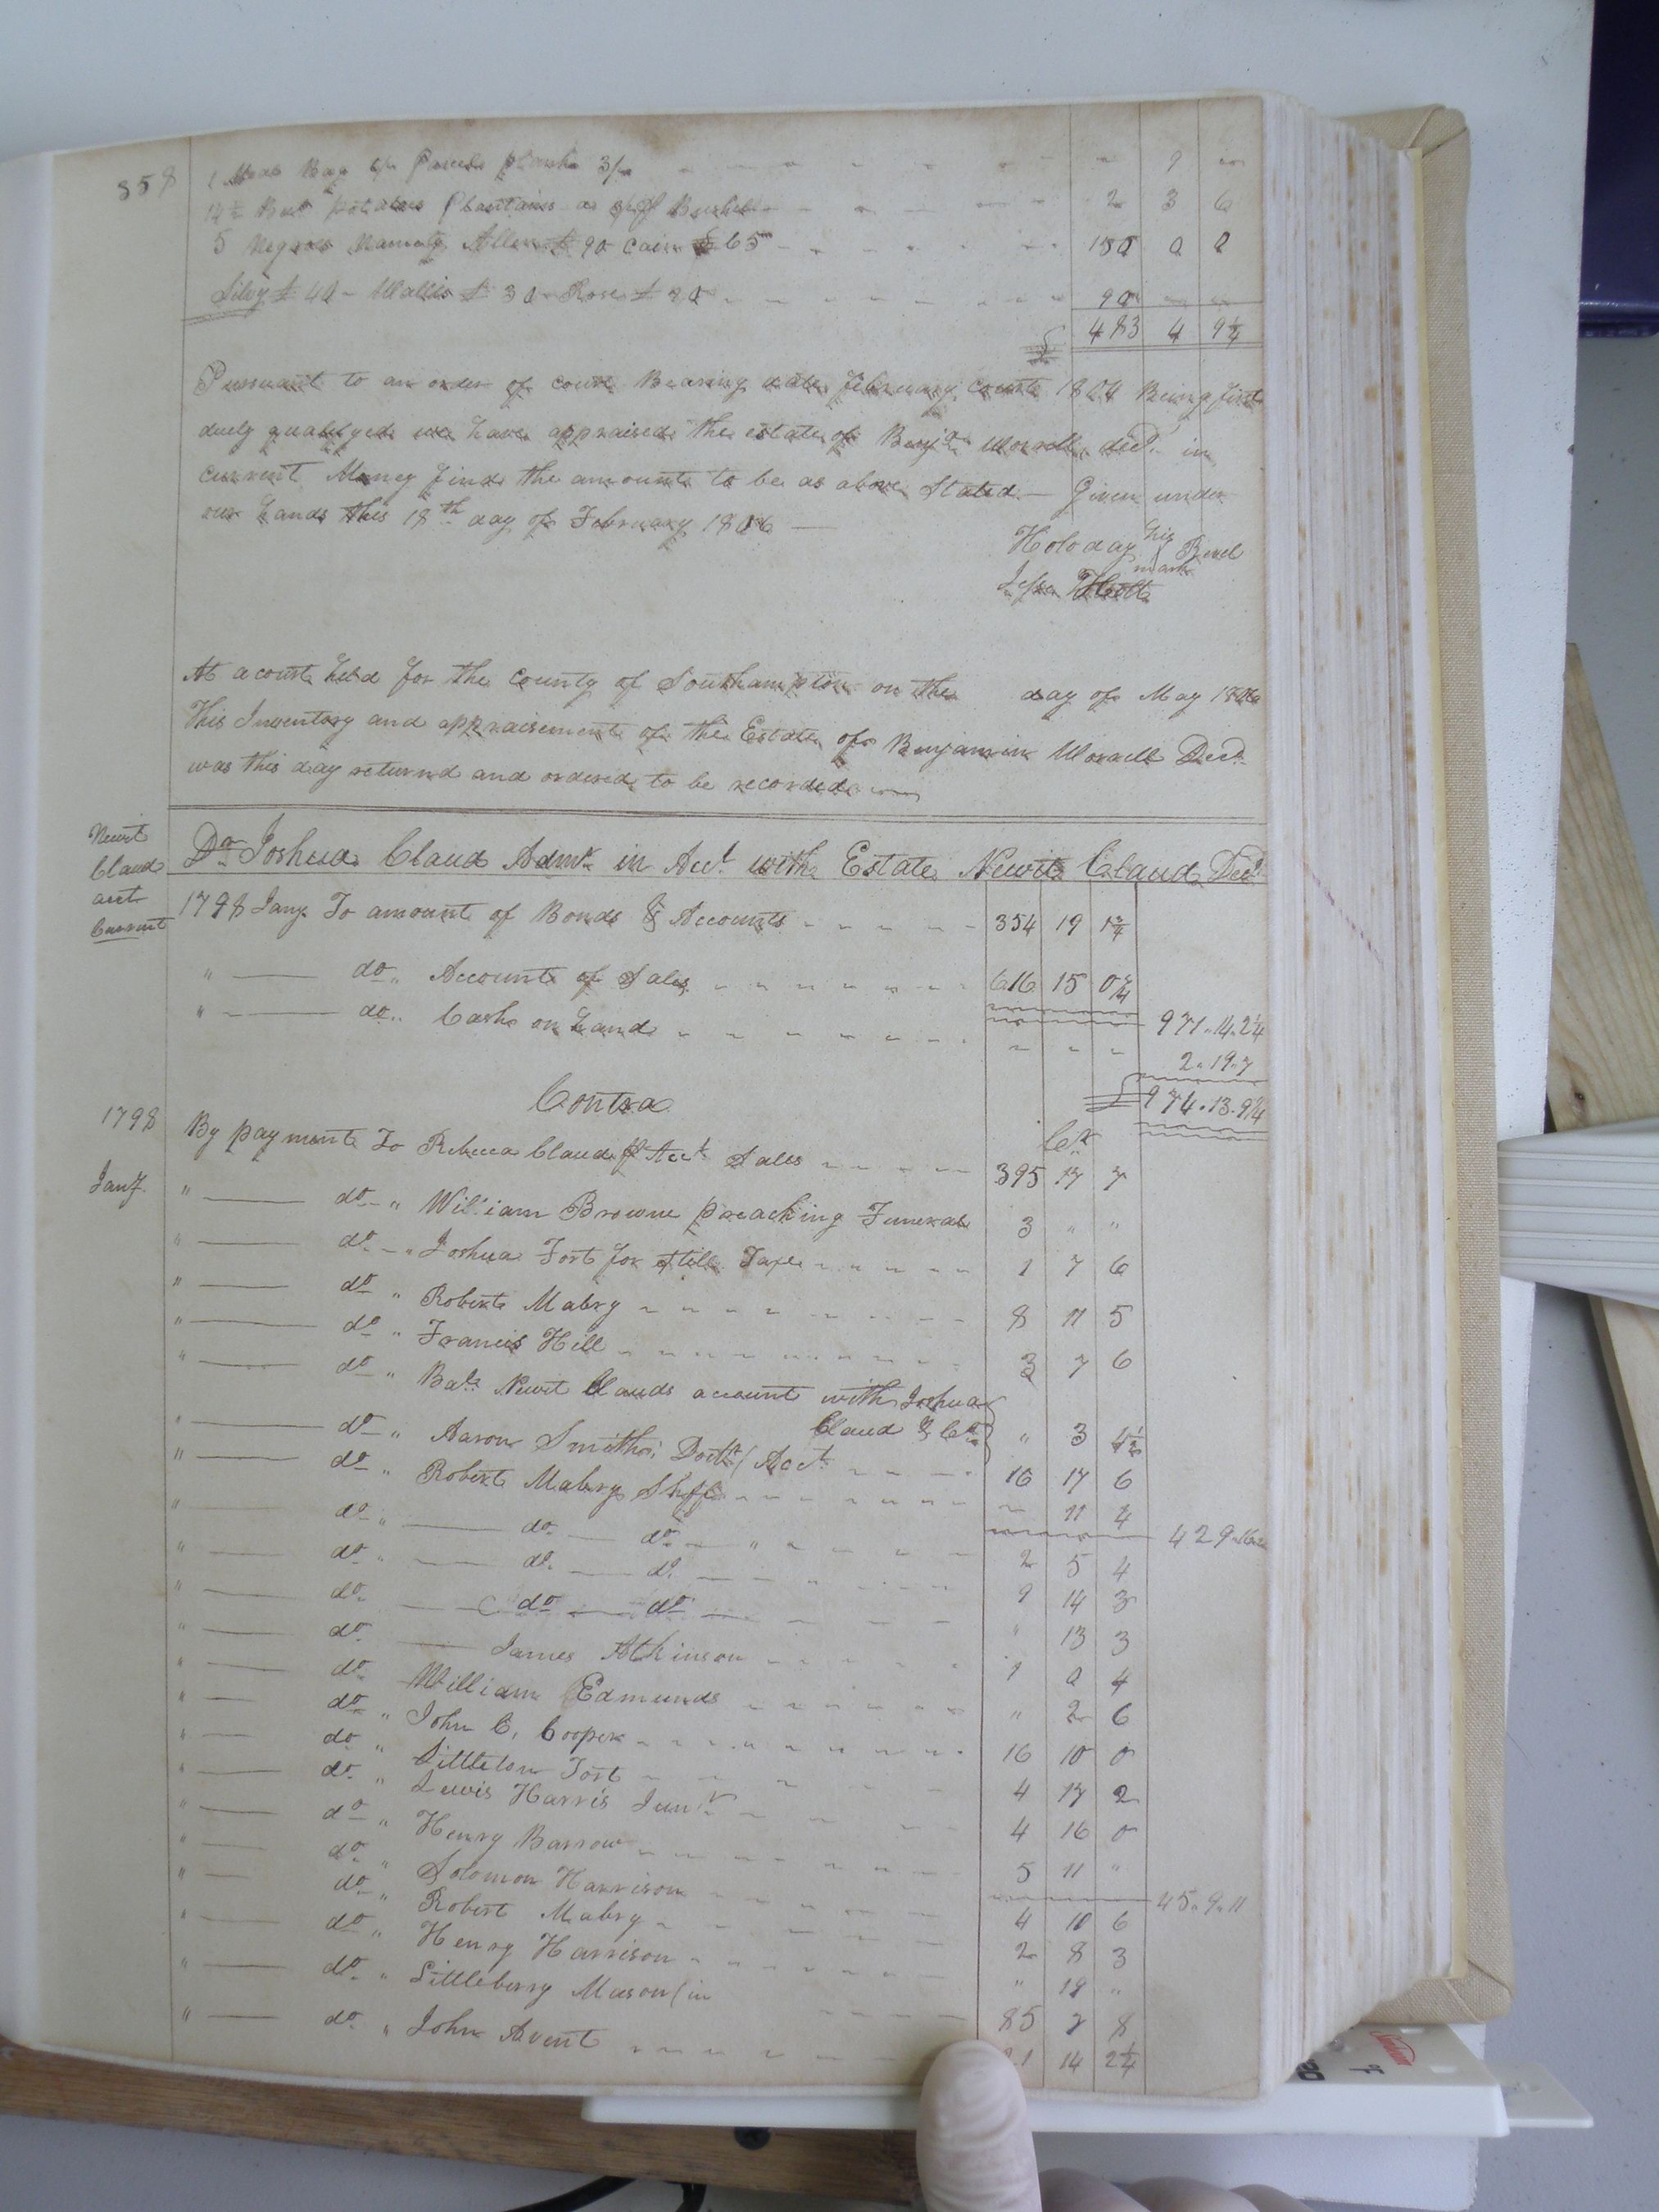 358
1 Meal Bag 6/ Parcel plank 3/ 9
14½ Bus. potatoes Plantains a 3/ Bushel 2 3 6
5 Negroes Namely Allen £ 90 Cain £ 65 150 0 0
Silvy £ 40 - £ 30 Rose £ 20 90
£ 483 4 9¼
Pursuant to an order of court Bearing date February court 1804 Being first
duely qualifyed we have appraised the estate of Benja. Worrell decd. in
current Money find the amount to be as above Stated — Given under
our hands this 18th day of February 1806 —
Holoday his mark Revel
Jesse Holt
At a court held for the County of Southampton on the day of May 1806
This Inventory and appraisement of the Estate of Benjamin Worrell Decd.
was this day returnd and ordered to be recorded
Newit Claud acct Currant
Dr Joshua Claud Admr. in Acct. with Estate Newit Claud Decd.
1798 Jany. To amount of Bonds & Accounts 354 19 1¾
" — do " Account of Sales 616 15 0¾
" — do " Cash on hand 971.14.2¼
2.19.7
£ 974.13.9¼
Contra
Cr
1798 By payment To Rebecca Claud Acct. Sales 395 17 7
Jany. " — do " William Browne preaching Funeral 3 " "
" — do " Joshua Fort for still Taxe 1 7 6
" — do " Robert Mabry 8 11 5
" — do " Francis Hill 3 7 6
" — do " Bale. Newit Clauds account with Joshua
Claud & Co. " 3 4½
" — do " Aaron Smith, Doctr. Acct. 16 17 6
" — do " Robert Mabry Shff 11 4
429.16
" — do " — do — do 2 5 4
" — do " — do — do 9 14 3
" — do — do — do " 13 3
" — do — James Atkinson 1 0 4
" — do William Edmunds " 2 6
" — do " John C. Cooper 16 10 0
" — do " Littleton Fort 4 17 2
" — do " Lewis Harris Junr. 4 16 0
" — do " Henry Barrow 5 11 "
45.9.11
" — do " Solomon Harrison 4 10 6
" — do " Robert Mabry 2 8 3
" — do " Henry Harrison " 18 "
" — do " Littleberry Mason 85 2 8
" — do " John Avent 21 14 2¼